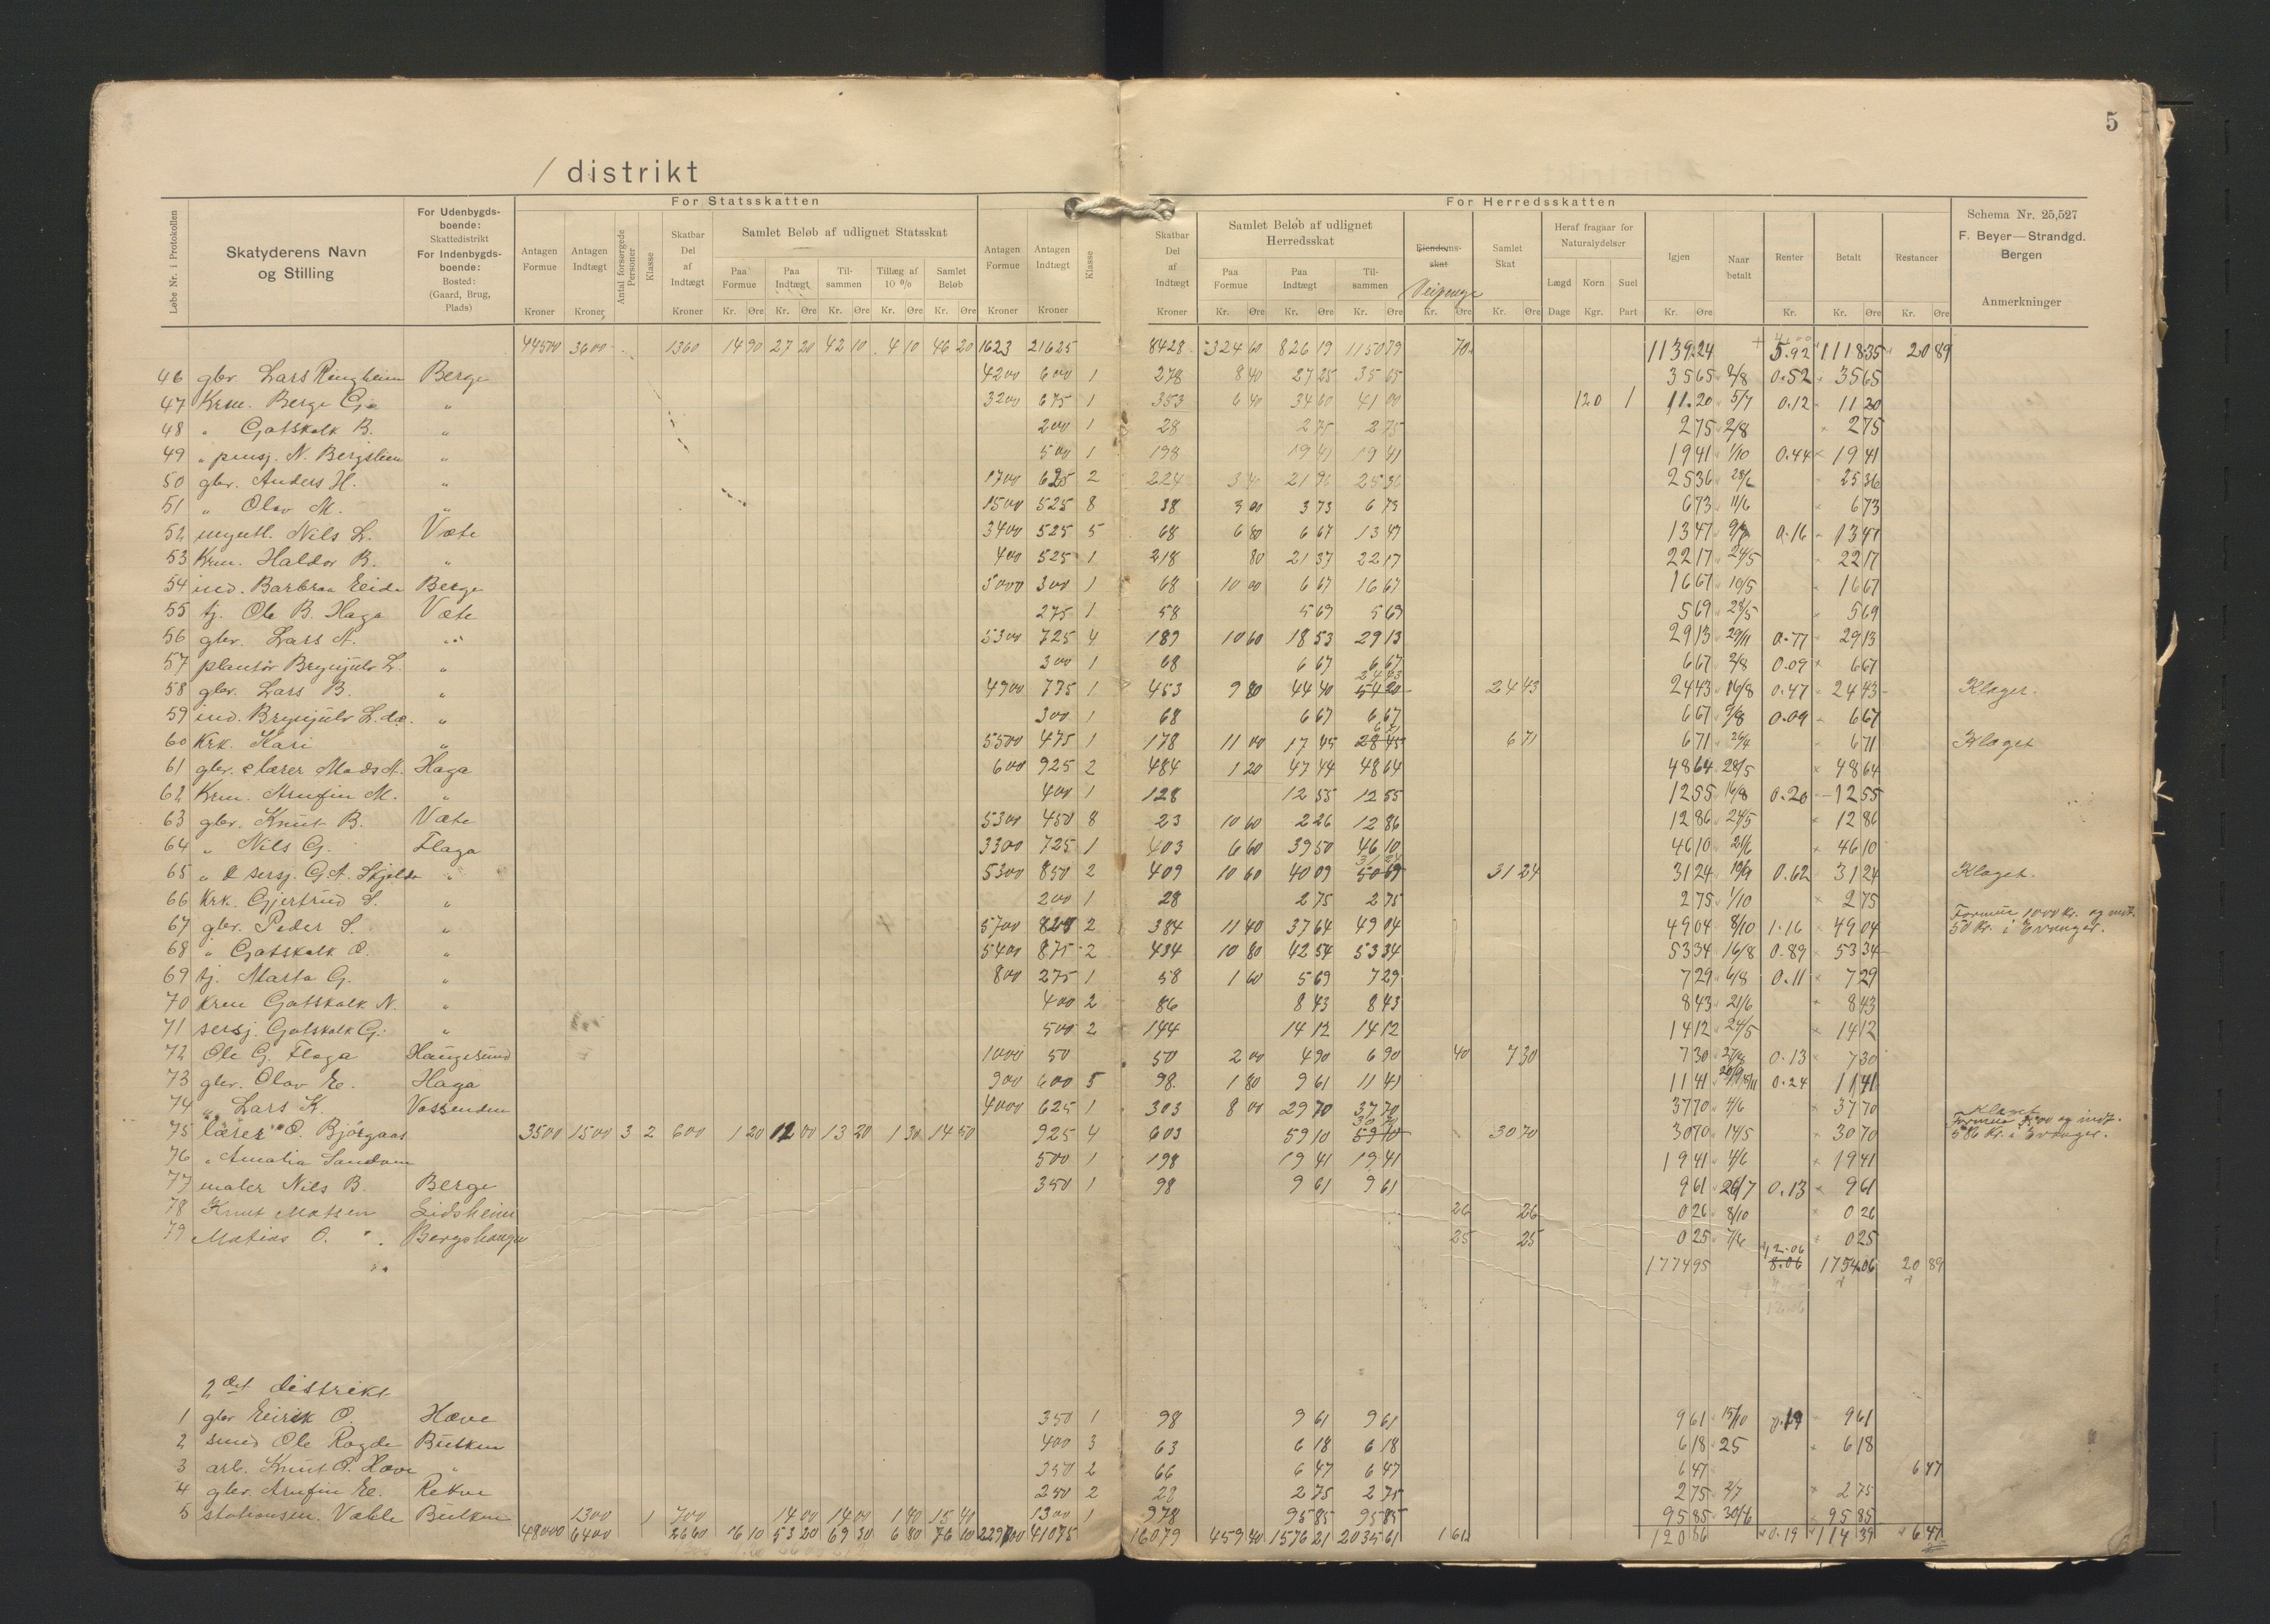 5
/ distrikt
Løbe Nr. i Protokollen
Skatyderens Navn og Stilling
For Udenbygds-boende: Skattedistrikt For Indenbygds-boende: Bosted: (Gaard, Brug, Plads)
For Statsskatten
Antagen Formue Kroner
Antagen Indtægt Kroner
Antal forsørgede Personer
Klasse
Skatbar Del af Indtægt Kroner
Samlet Beløb af udlignet Statsskat
Paa Formue Kr. Øre
Paa Indtægt Kr. Øre
Til-sammen Kr. Øre
Tillæg af 10 % Kr. Øre
Samlet Beløb Kr. Øre
For Herredsskatten
Antagen Formue Kroner
Antagen Indtægt Kroner
Klasse
Skatbar Del af Indtægt Kroner
Samlet Beløb af udlignet Herredsskat
Paa Formue Kr. Øre
Paa Indtægt Kr. Øre
Til-sammen Kr. Øre
Eiendoms-skat Veipenge Kr. Øre
Samlet Skat Kr. Øre
Heraf fragaar for Naturalydelser
Lægd Dage
Korn Kgr.
Suel Part
Igjen Kr. Øre
Naar betalt
Renter Kr.
Betalt Kr. Øre
Restancer Kr. Øre
Schema Nr. 25,527
F. Beyer—Strandgd. Bergen
Anmerkninger
44500 3600 1360 14 90 27 20 42 10 4 10 46 20 1623 21625 8428 324 60 826 19 1150 79 70 1139.24 5.92 1118.35 20 89
46 gbr. Lars Ringheim Berge 4200 600 1 278 8 40 27 25 35 65 35 65 2/8 0.52 35 65
47 Krm. Berge G. " 3200 675 1 353 6 40 34 60 41 00 120 1 11.20 5/7 0.12 11 20
48 " Gotskalk B. " 200 1 28 2 75 2 75 2 75 2/8 2 75
49 " pensj. N. Bergsheim " 500 1 198 19 41 19 41 19 41 1/10 0.44 19 41
50 gbr. Anders H. " 1700 625 2 224 3 40 21 96 25 36 25 36 28/6 25 36
51 " Olav M. " 1500 525 8 38 3 00 3 73 6 73 6 73 11/6 6 73
52 ungutl. Nils L. Væte 3400 525 5 68 6 80 6 67 13 47 13 47 0.16 13 47
53 Krm. Haldor B. " 400 525 1 218 80 21 37 22 17 22 17 24/5 22 17
54 ind. Barbraa Eeide Berge 5000 300 1 68 10 00 6 67 16 67 16 67 10/5 16 67
55 tj. Ole B. Haga Væte 275 1 58 5 69 5 69 5 69 28/5 5 69
56 gbr. Lars A. " 5300 725 4 189 10 60 18 53 29 13 29 13 29/11 0.77 29 13
57 plantör Brynjulv L. " 300 1 68 6 67 6 67 6 67 2/8 0.09 6 67
58 gbr. Lars B. " 4900 775 1 453 9 80 44 40 54 20 24 43 24 43 24 43 16/8 0.47 24 43 Klaget.
59 ind. Brynjulv L. do. " 300 1 68 6 67 6 67 6 67 9/8 0.09 6 67
60 Krk. Kari " 5500 475 1 178 11 00 17 45 28 45 6 71 6 71 6 71 26/4 6 71 Klaget
61 gbr. & lærer Mads N. Haga 600 925 2 484 1 20 47 44 48 64 48 64 28/5 48 64
62 Krm. Arnfin M. " 400 1 128 12 55 12 55 12 55 16/8 0.20 12 55
63 gbr. Knut B. Væte 5300 450 8 23 10 60 2 26 12 86 12 86 24/5 12 86
64 " Nils G. Flaga 3300 725 1 403 6 60 39 50 46 10 46 10 21/6 46 10
65 " & sersj. G. A. Skjelde " 5300 850 2 409 10 60 40 09 50 69 31 24 31 24 31 24 19/9 0.62 31 24 Klaget.
66 Krk. Gjertrud S. " 200 1 28 2 75 2 75 2 75 1/10 2 75
67 gbr. Peder S. " 5700 825 2 384 11 40 37 64 49 04 49 04 8/10 1.16 49 04 Formue 1000 Kr. og indt. 50 Kr. i Evanger.
68 " Gotskalk O. " 5400 875 2 434 10 80 42 54 53 34 53 34 16/8 0.89 53 34
69 tj. Marta G. " 800 275 1 58 1 60 5 69 7 29 7 29 6/8 0.11 7 29
70 Krm Gotskalk N. " 400 2 86 8 43 8 43 8 43 21/6 8 43
71 sersj. Gotskalk G. " 500 2 144 14 12 14 12 14 12 24/5 14 12
72 Ole G. Flaga Haugesund 1000 50 50 2 00 4 90 6 90 40 7 30 7 30 27/8 0.13 7 30
73 gbr. Olav E. Haga 900 600 5 98 1 80 9 61 11 41 11 41 0.24 11 41
74 " Lars K. Vossenden 4000 625 1 303 8 00 29 70 37 70 37 70 4/6 37 70
75 lærer O. Bjørgaas 3500 1500 3 2 600 1 20 12 00 13 20 1 30 14 50 925 4 603 59 10 59 10 30 70 30 70 30 70 14/5 30 70 Klaget Formue 3500 og indt. 586 Kr. i Evanger.
76 " Amalia Sandven 500 1 198 19 41 19 41 19 41 4/6 19 41
77 maler Nils B. Berge 350 1 98 9 61 9 61 9 61 26/7 0.13 9 61
78 Knut Matsen Lidsheim 26 26 0 26 8/10 0 26
79 Matias O. " Bergshaugen 25 25 0 25 7/6 0 25
1774 95 8.06 12.06 1754.06 20 89
2det distrikt
1 gbr Eirik O. Hæve 350 1 98 9 61 9 61 9 61 15/10 0.19 9 61
2 smed Ole Rogde Bulken 400 3 63 6 18 6 18 6 18 25 6 18
3 arb. Knut O. Hæve " 350 2 66 6 47 6 47 6 47 6 47
4 gbr. Arnfin E. Rekve 250 2 28 2 75 2 75 2 75 2/7 2 75
5 stationsm. Væhle Bulken 1300 1 700 14 00 14 00 1 40 15 40 1300 1 978 95 85 95 85 95 85 30/6 95 85
48000 6400 2660 16 10 53 20 69 30 6 80 76 10 229700 41075 16079 459 40 1576 21 2035 61 1 61 120 86 0.19 114 39 6 47